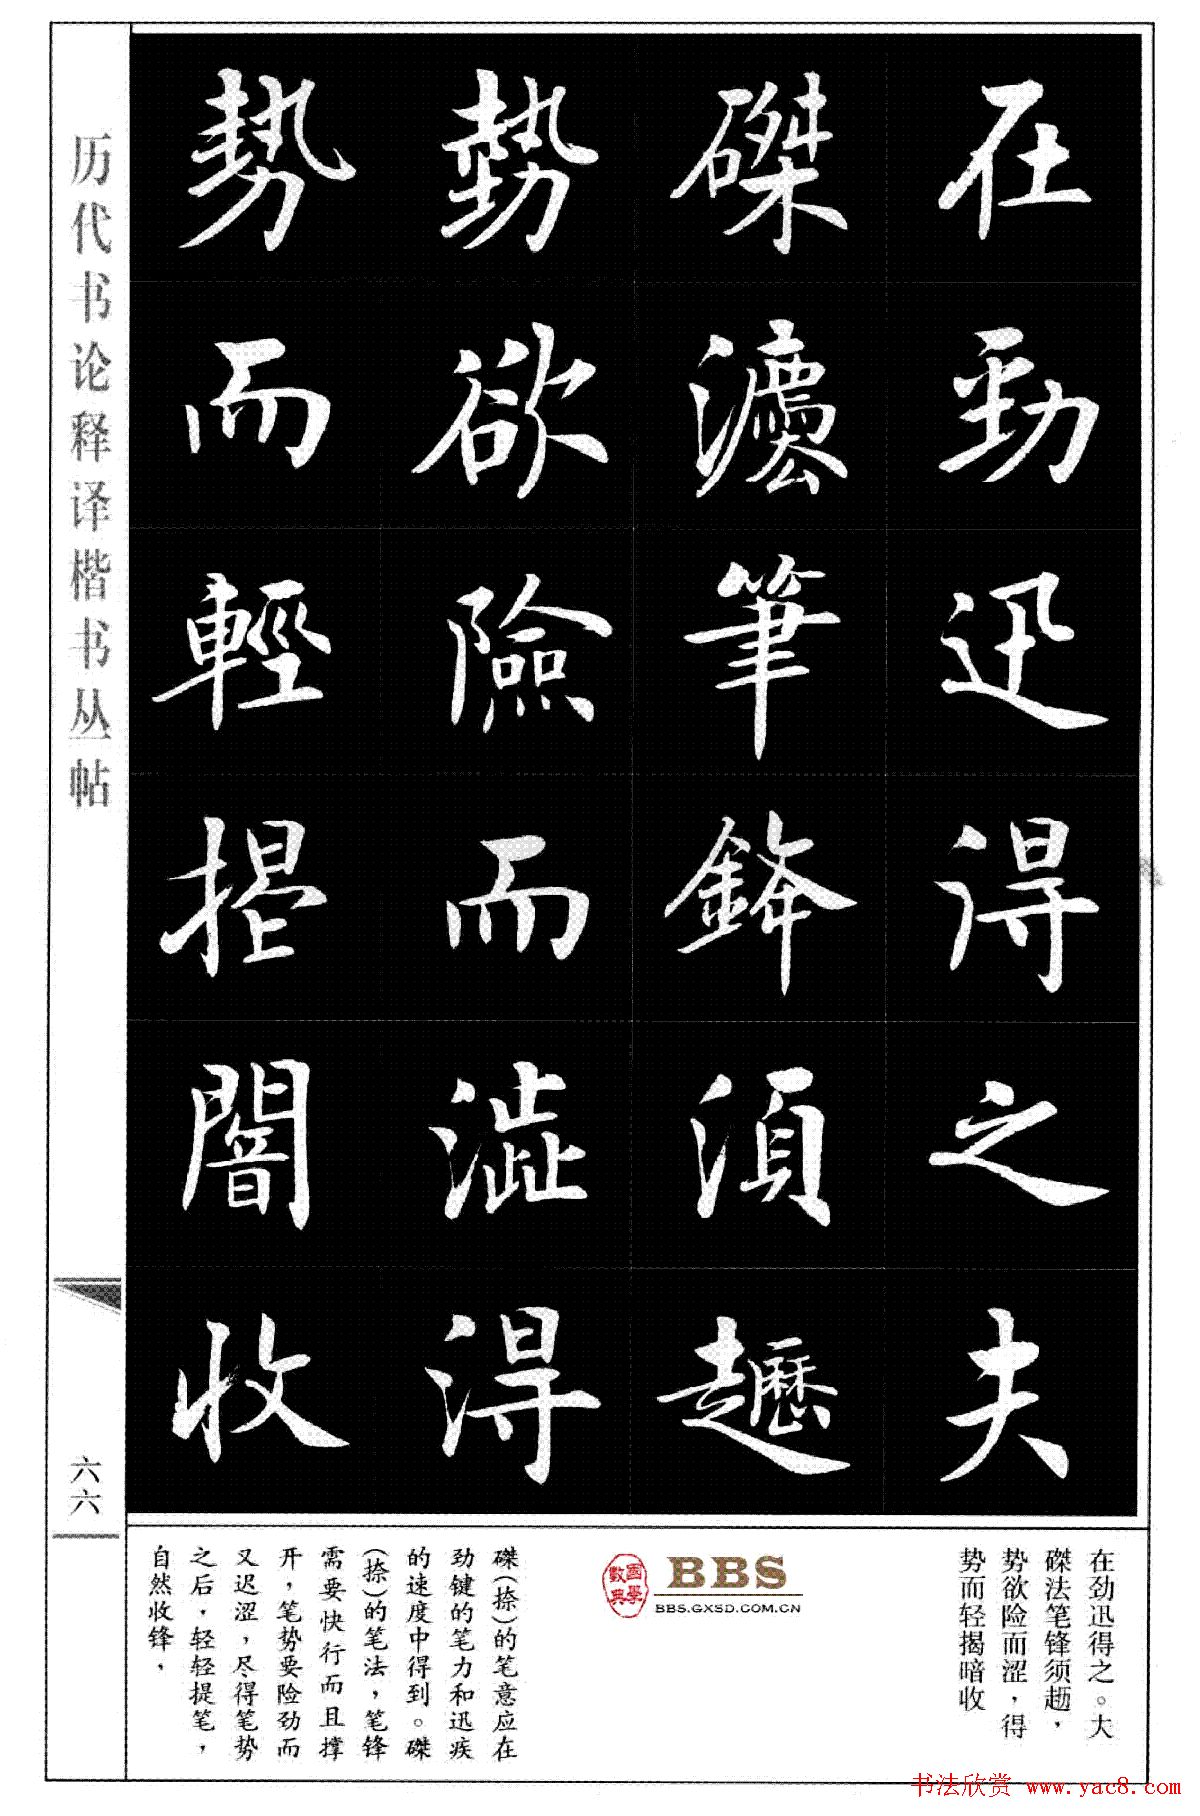 历代书论释译楷书丛帖
六六
在勁迅得之夫
磔灋筆鋒須趯
勢欲險而澁得
勢而輕揭闇收
在劲迅得之。大
磔法笔锋须趯，
势欲险而涩，得
势而轻揭暗收
國學數典
BBS
BBS.GXSD.COM.CN
磔(捺)的笔意应在
劲键的笔力和迅疾
的速度中得到。磔
(捺)的笔法，笔锋
需要快行而且撑
开，笔势要险劲而
又迟涩，尽得笔势
之后，轻轻提笔，
自然收锋，
书法欣赏 www.yac8.com